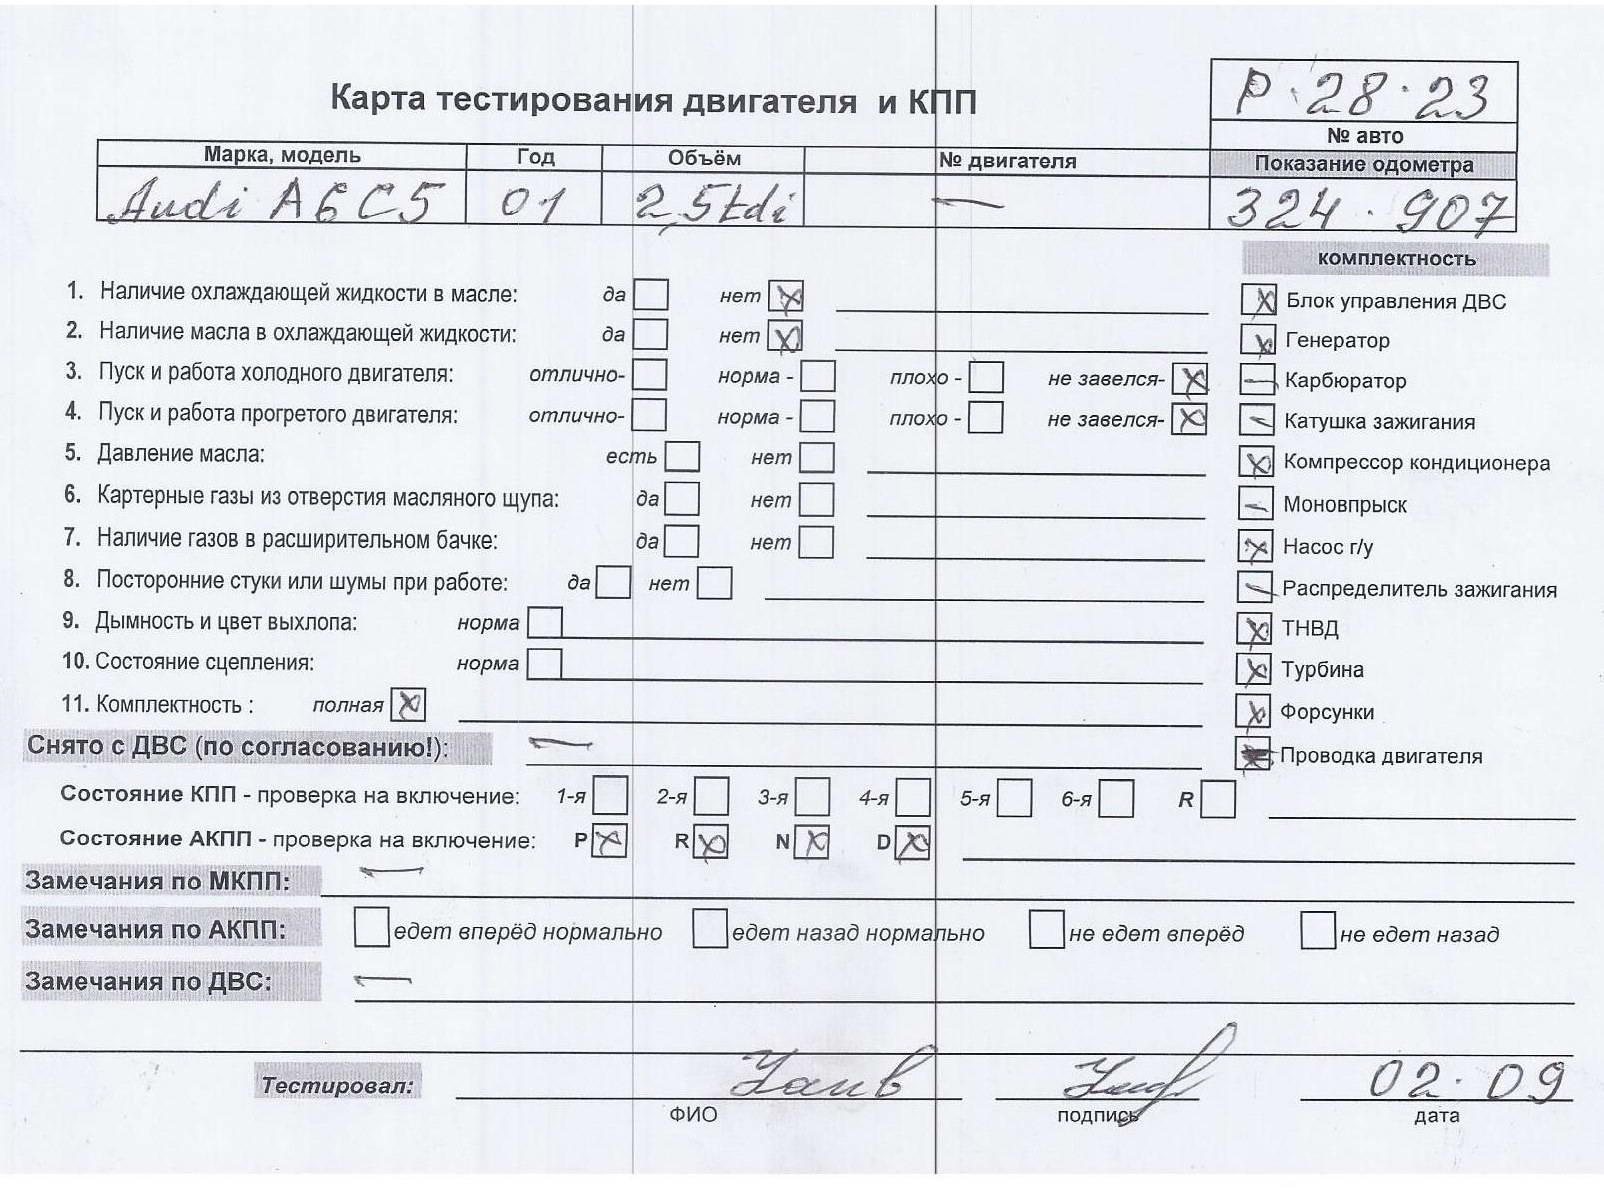 Карта тестирования двигателя и КПП
Р·28·23
№ авто
Марка, модель Год Объём № двигателя Показание одометра
Audi A6C5 01 2,5tdi — 324·907
комплектность
1. Наличие охлаждающей жидкости в масле: да нет Х
Х Блок управления ДВС
2. Наличие масла в охлаждающей жидкости: да нет Х
Х Генератор
3. Пуск и работа холодного двигателя: отлично- норма - плохо - не завелся- Х
— Карбюратор
4. Пуск и работа прогретого двигателя: отлично- норма - плохо - не завелся- Х
— Катушка зажигания
5. Давление масла: есть нет
Х Компрессор кондиционера
6. Картерные газы из отверстия масляного щупа: да нет
— Моновпрыск
7. Наличие газов в расширительном бачке: да нет
Х Насос г/у
8. Посторонние стуки или шумы при работе: да нет
— Распределитель зажигания
9. Дымность и цвет выхлопа: норма
Х ТНВД
10. Состояние сцепления: норма
Х Турбина
11. Комплектность : полная Х
Х Форсунки
Снято с ДВС (по согласованию!): —
Проводка двигателя
Состояние КПП - проверка на включение: 1-я 2-я 3-я 4-я 5-я 6-я R
Состояние АКПП - проверка на включение: P Х R Х N Х D Х
Замечания по МКПП: —
Замечания по АКПП: едет вперёд нормально едет назад нормально не едет вперёд не едет назад
Замечания по ДВС: —
Тестировал: 02·09
ФИО подпись дата